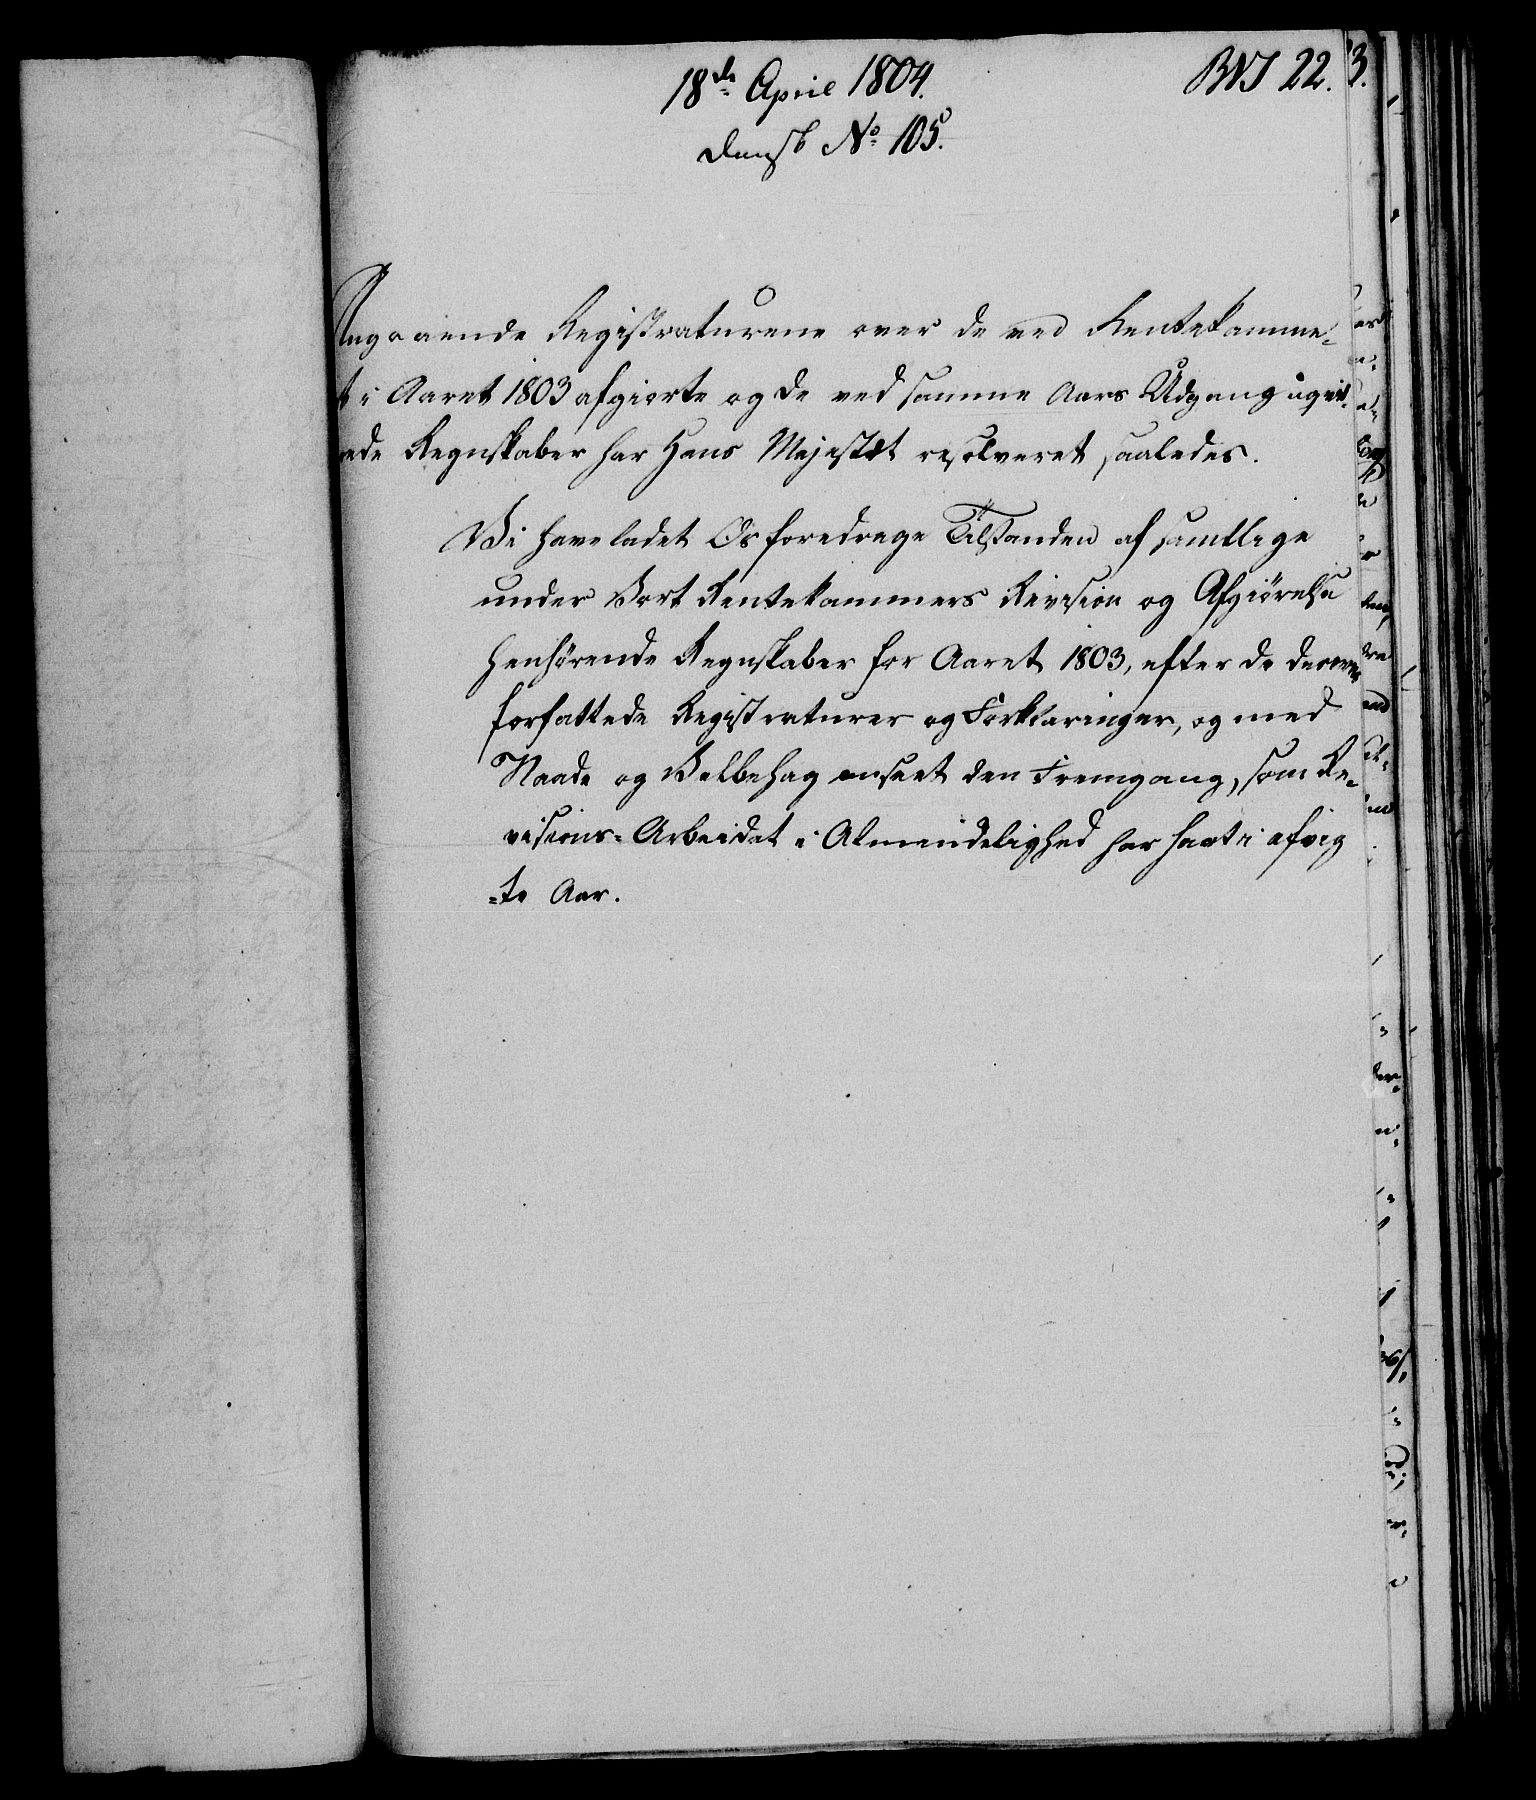 18de April 1804.
RNJ 22.
Dansk No 105.
Angaaende Registraturene over de ved Rentekamme-
t i Aaret 1803 afgiorte og de ved samme Aars Udgang uqvit-
rede Regnskaber har Hans Majestæt resolveret saaledes.
Vi have ladet Os foredrage Tilstanden af samtlige
under Vort Rentekammers Revision og Afgiørelse
henhørende Regnskaber for Aaret 1803, efter de derover
forfattede Registraturer og Forklaringer, og med
Naade og Velbehag anseet den Fremgang, som Re-
visions-Arbeidet i Almindelighed har havt i afvig
-te Aar.